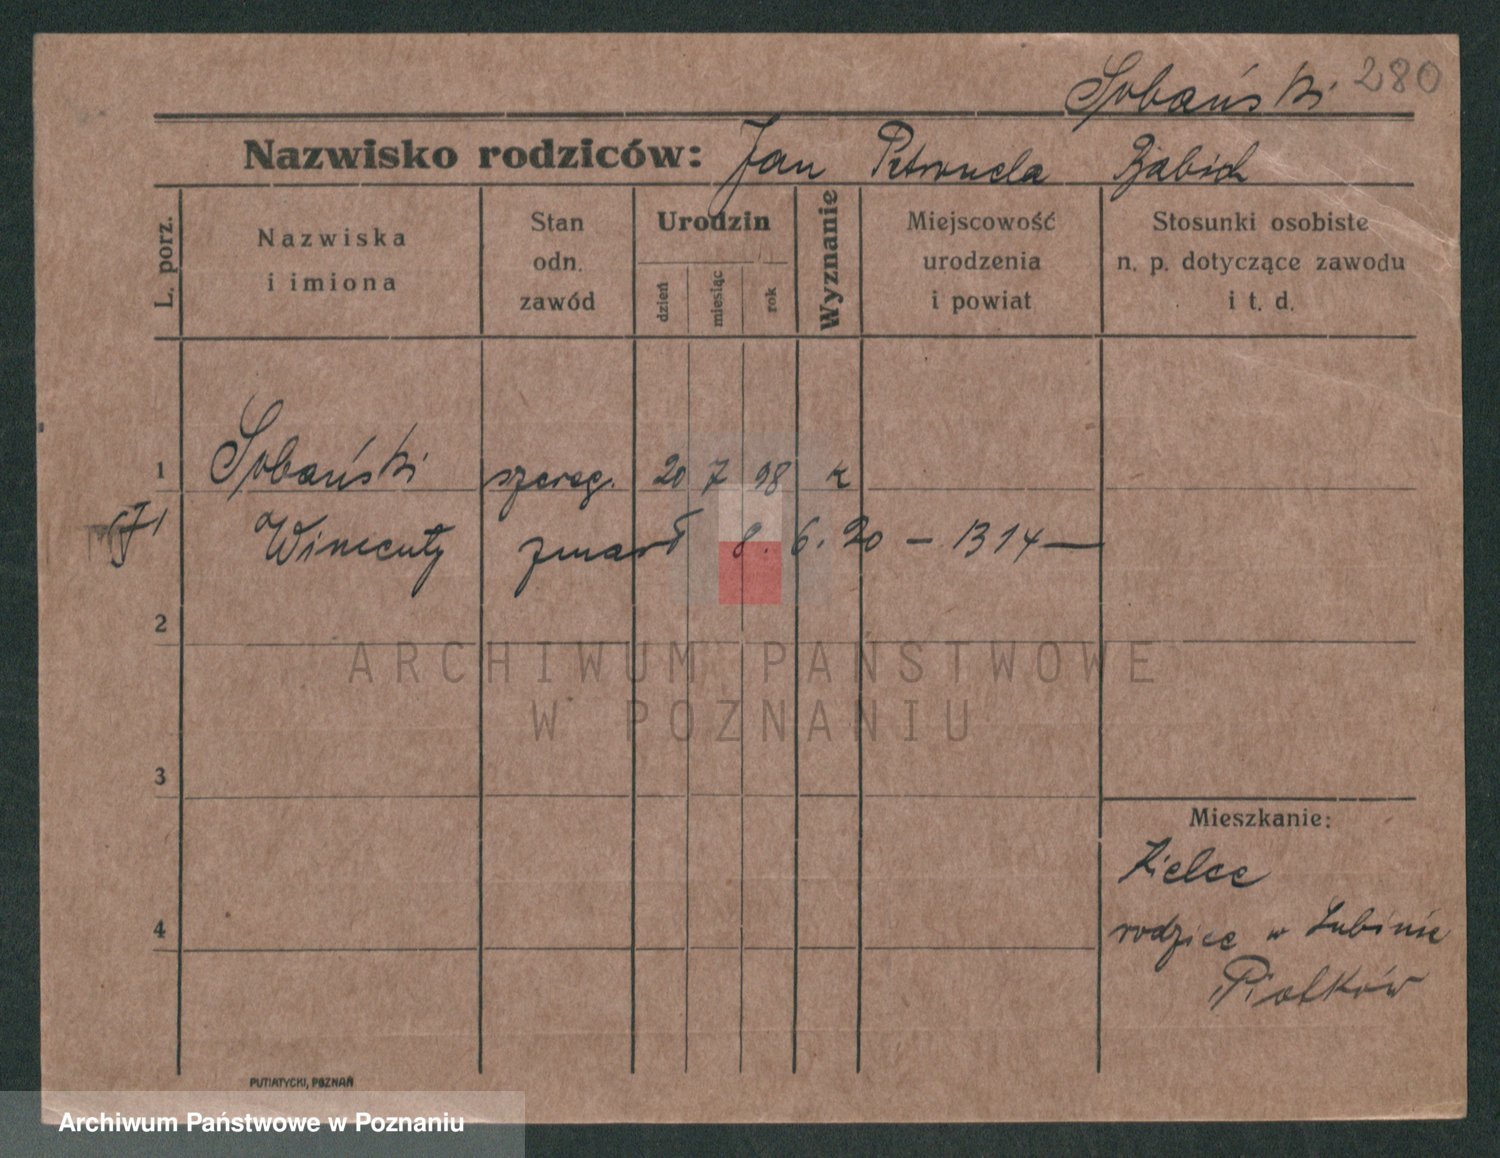 Sobański 280
Nazwisko rodziców: Jan Petronela Babich
L. porz.
Nazwiska
i imiona
Stan
odn.
zawód
Urodzin
dzień
miesiąc
rok
Wyznanie
Miejscowość
urodzenia
i powiat
Stosunki osobiste
n. p. dotyczące zawodu
i t. d.
1 Sobański szereg. 20 7 98 k
Wincenty zmarł 8. 6. 20 — 1314 —
2
ARCHIWUM PAŃSTWOWE
W POZNANIU
3
Mieszkanie:
Kielce
4 rodzice w Lubinie
Piotków
PUTIATYCKI, POZNAŃ
Archiwum Państwowe w Poznaniu